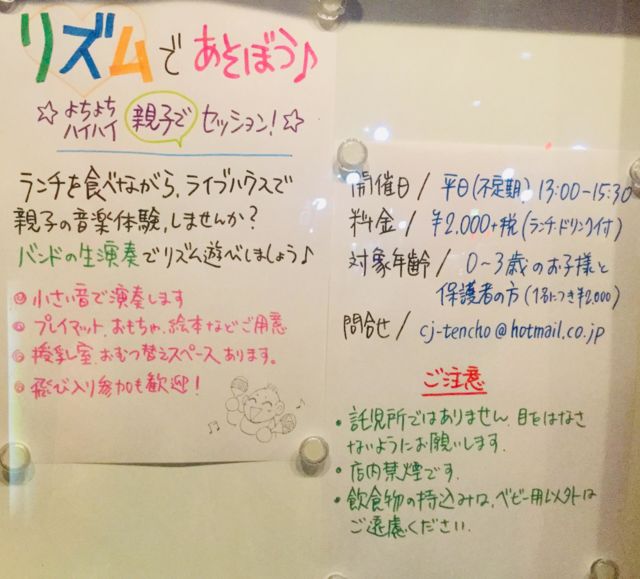 リズムであそぼう♪
☆よちよち
ハイハイ 親子で セッション!☆
ランチを食べながら、ライブハウスで
親子の音楽体験、しませんか?
バンドの生演奏でリズム遊べしましょう♪
◎小さい音で演奏します
◎プレイマット、おもちゃ、絵本などご用意
◎授乳室、おむつ替えスペースあります。
◎飛び入り参加も歓迎!
開催日/ 平日(不定期) 13:00-15:30
料金/ ¥2.000+税(ランチ・ドリンク付)
対象年齢/ 0~3歳のお子様と
保護者の方(1名につき¥2,000)
問合せ/ cj-tencho@hotmail.co.jp
ご注意
・託児所ではありません。目をはなさ
ないようにお願いします。
・店内禁煙です。
・飲食物の持込みは、ベビー用以外は
ご遠慮ください。